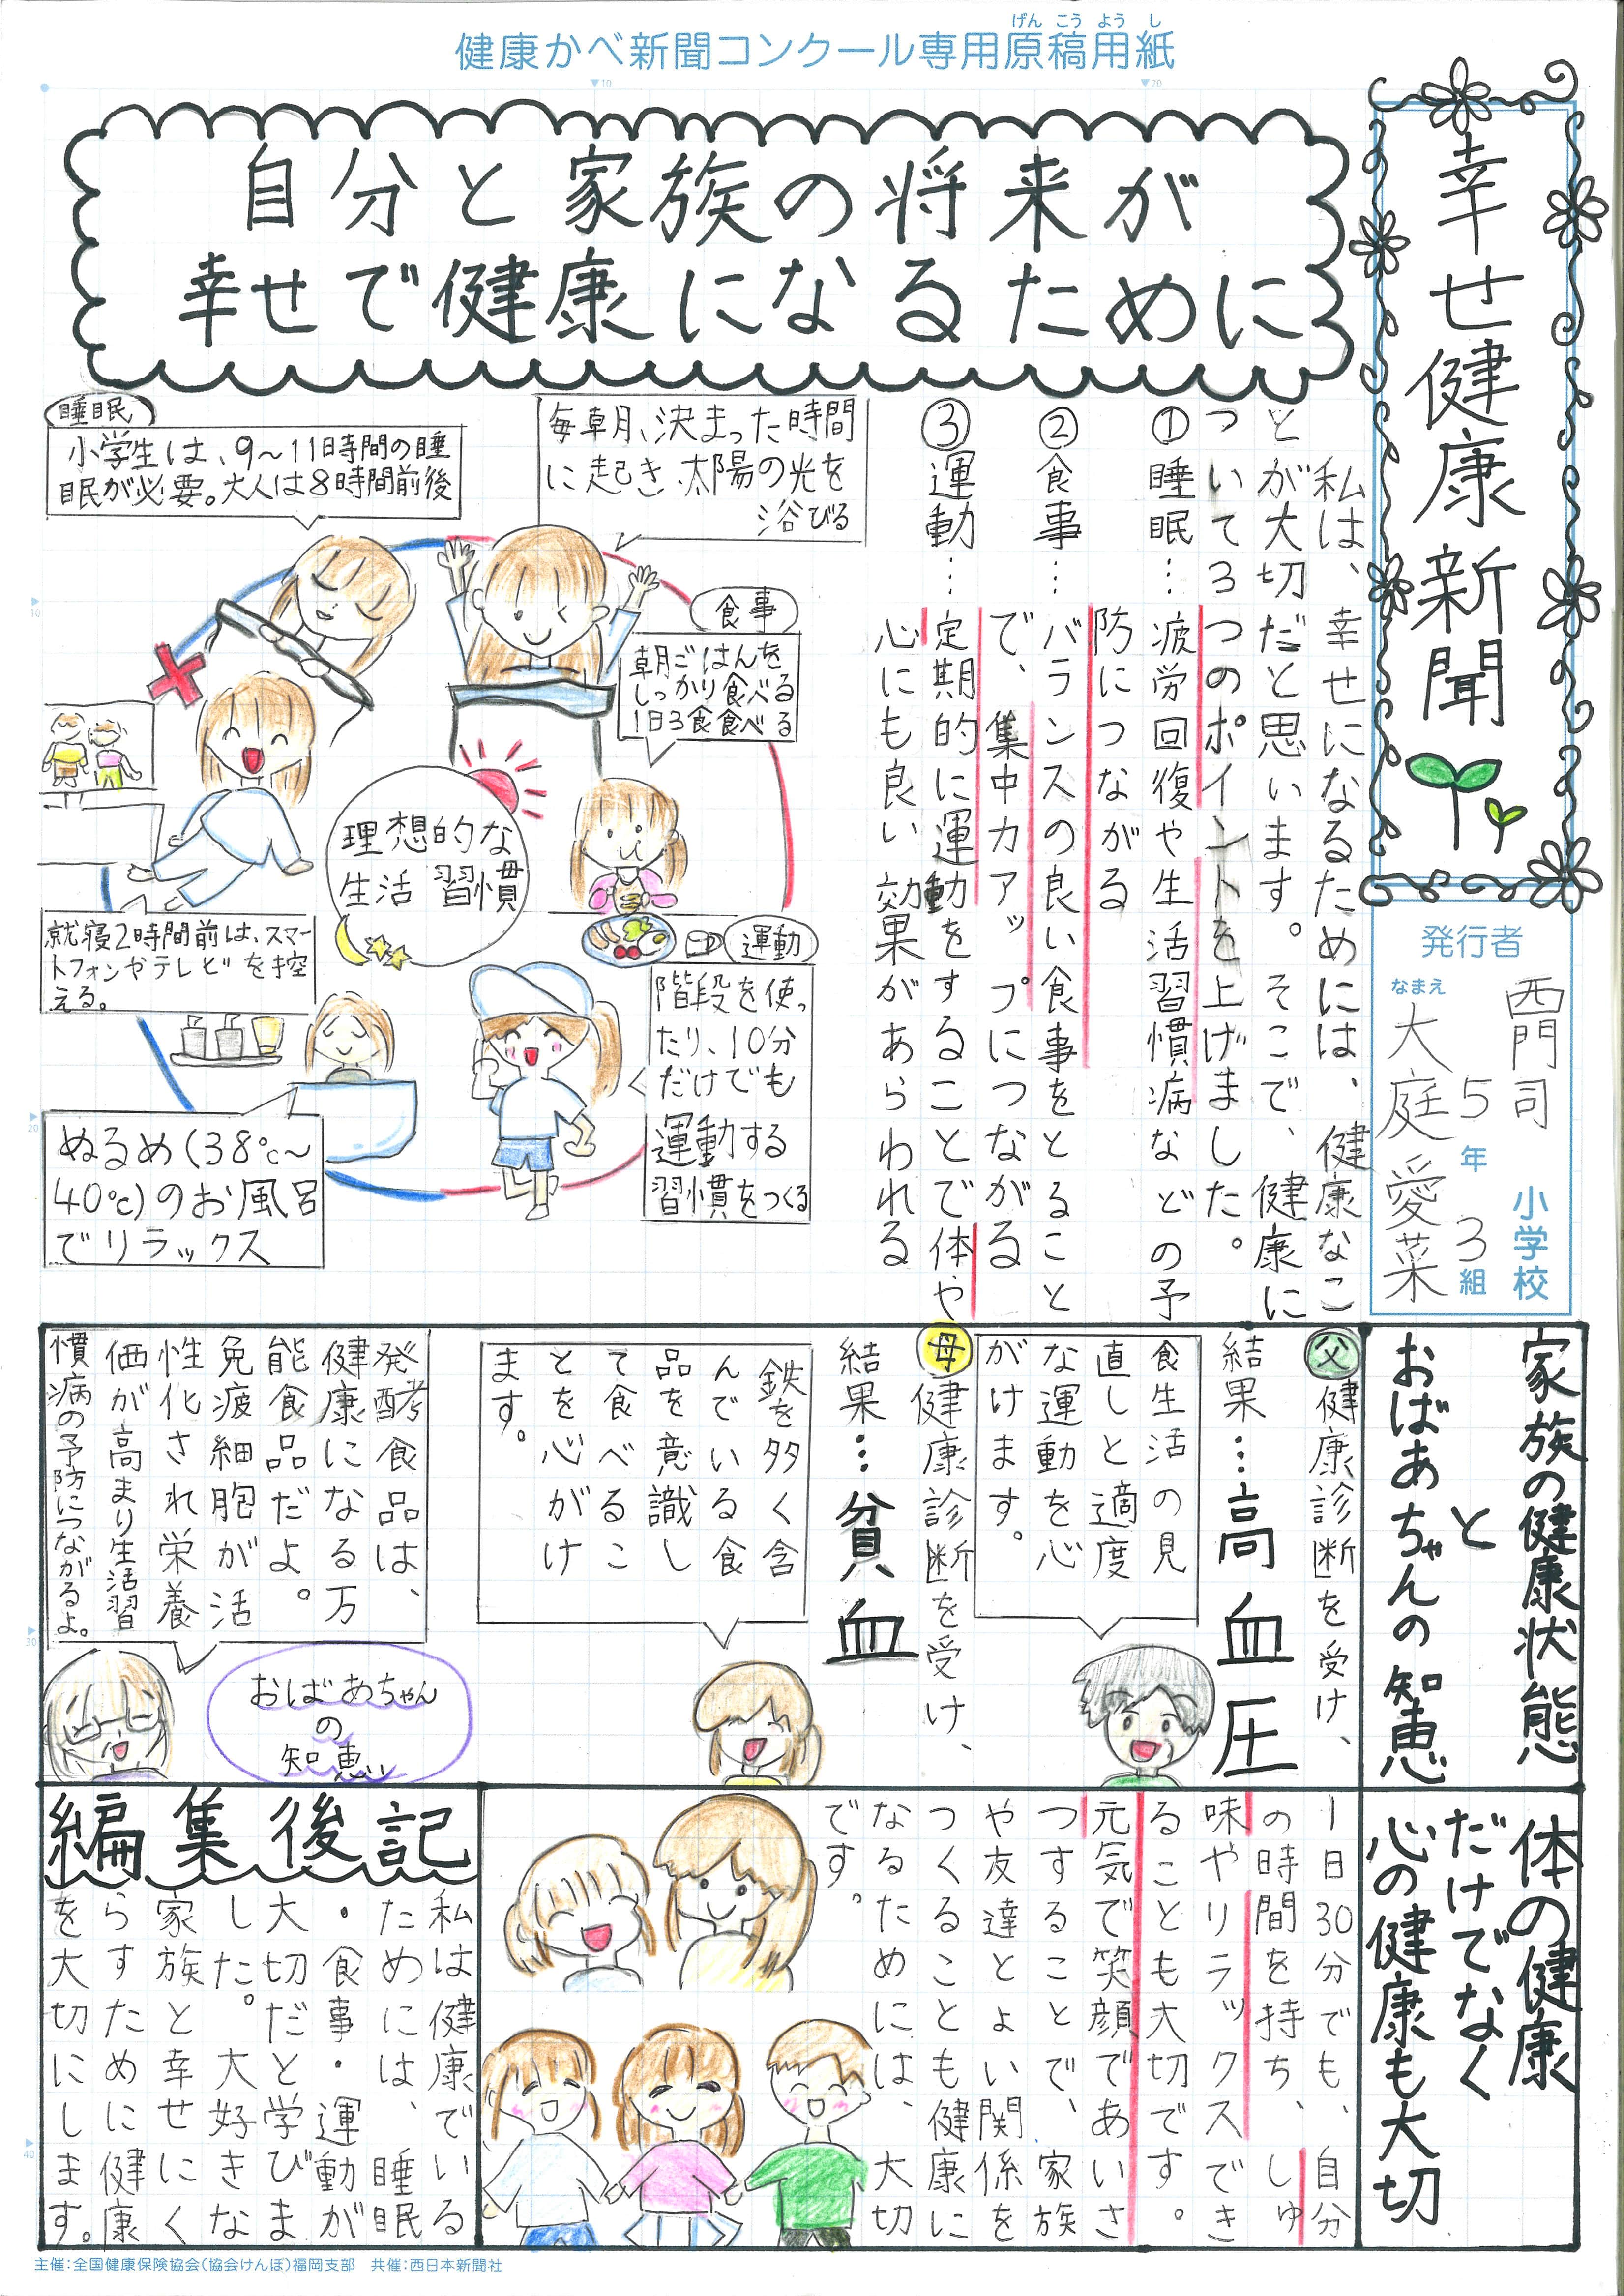 健康かべ新聞コンクール専用原稿用紙
げんこうようし
▼10
▼20
幸せ健康新聞
発行者
西門司
小学校
5年3組
なまえ
大庭愛菜
自分と家族の将来が
幸せで健康になるために
私は、幸せになるためには、健康なこ
とが大切だと思います。そこで、健康に
ついて3つのポイントを上げました。
①睡眠…疲労回復や生活習慣病などの予
防につながる
②食事…バランスの良い食事をとること
で、集中力アップにつながる
③運動…定期的に運動をすることで体や
心にも良い効果があらわれる
毎朝、決まった時間
に起き、太陽の光を
浴びる
食事
朝ごはんを
しっかり食べる
1日3食食べる
運動
階段を使っ
たり、10分
だけでも
運動する
習慣をつくる
ぬるめ(38℃～
40℃)のお風呂
でリラックス
就寝2時間前は、スマー
トフォンやテレビを控
える。
睡眠
小学生は、9～11時間の睡
眠が必要。大人は8時間前後
理想的な
生活習慣
10
20
30
40
家族の健康状態
と
おばあちゃんの知恵
父健康診断を受け、
結果…高血圧
食生活の見
直しと適度
な運動を心
がけます。
母健康診断を受け、
結果…貧血
鉄を多く含
んでいる食
品を意識し
て食べるこ
とを心がけ
ます。
発酵食品は、
健康になる万
能食品だよ。
免疫細胞が活
性化され栄養
価が高まり生活習
慣病の予防につながるよ。
おばあちゃん
の
知恵
体の健康
だけでなく
心の健康も大切
1日30分でも、自分
の時間を持ち、しゅ
味やリラックスでき
ることも大切です。
元気で笑顔であいさ
つすることで、家族
や友達とよい関係を
つくることも健康に
なるためには、大切
です。
編集後記
私は健康でいる
ためには、睡眠
・食事・運動が
大切だと学びま
した。大好きな
家族と幸せにく
らすために健康
を大切にします。
主催:全国健康保険協会(協会けんぽ)福岡支部　共催:西日本新聞社